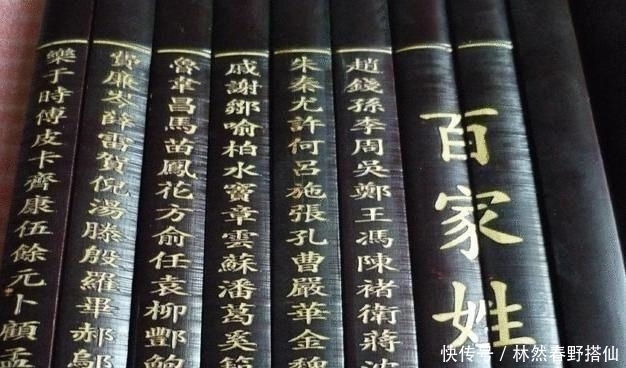 百家姓
趙錢孫李周吳鄭王馮陳褚衛蔣沈
朱秦尤許何呂施張孔曹嚴華金魏
戚謝鄒喻柏水竇章雲蘇潘葛奚範
魯韋昌馬苗鳳花方俞任袁柳酆鮑
費廉岑薛雷賀倪湯滕殷羅畢郝鄔
樂于時傅皮卡齊康伍餘元卜顧孟
快传号／林然春野搭仙